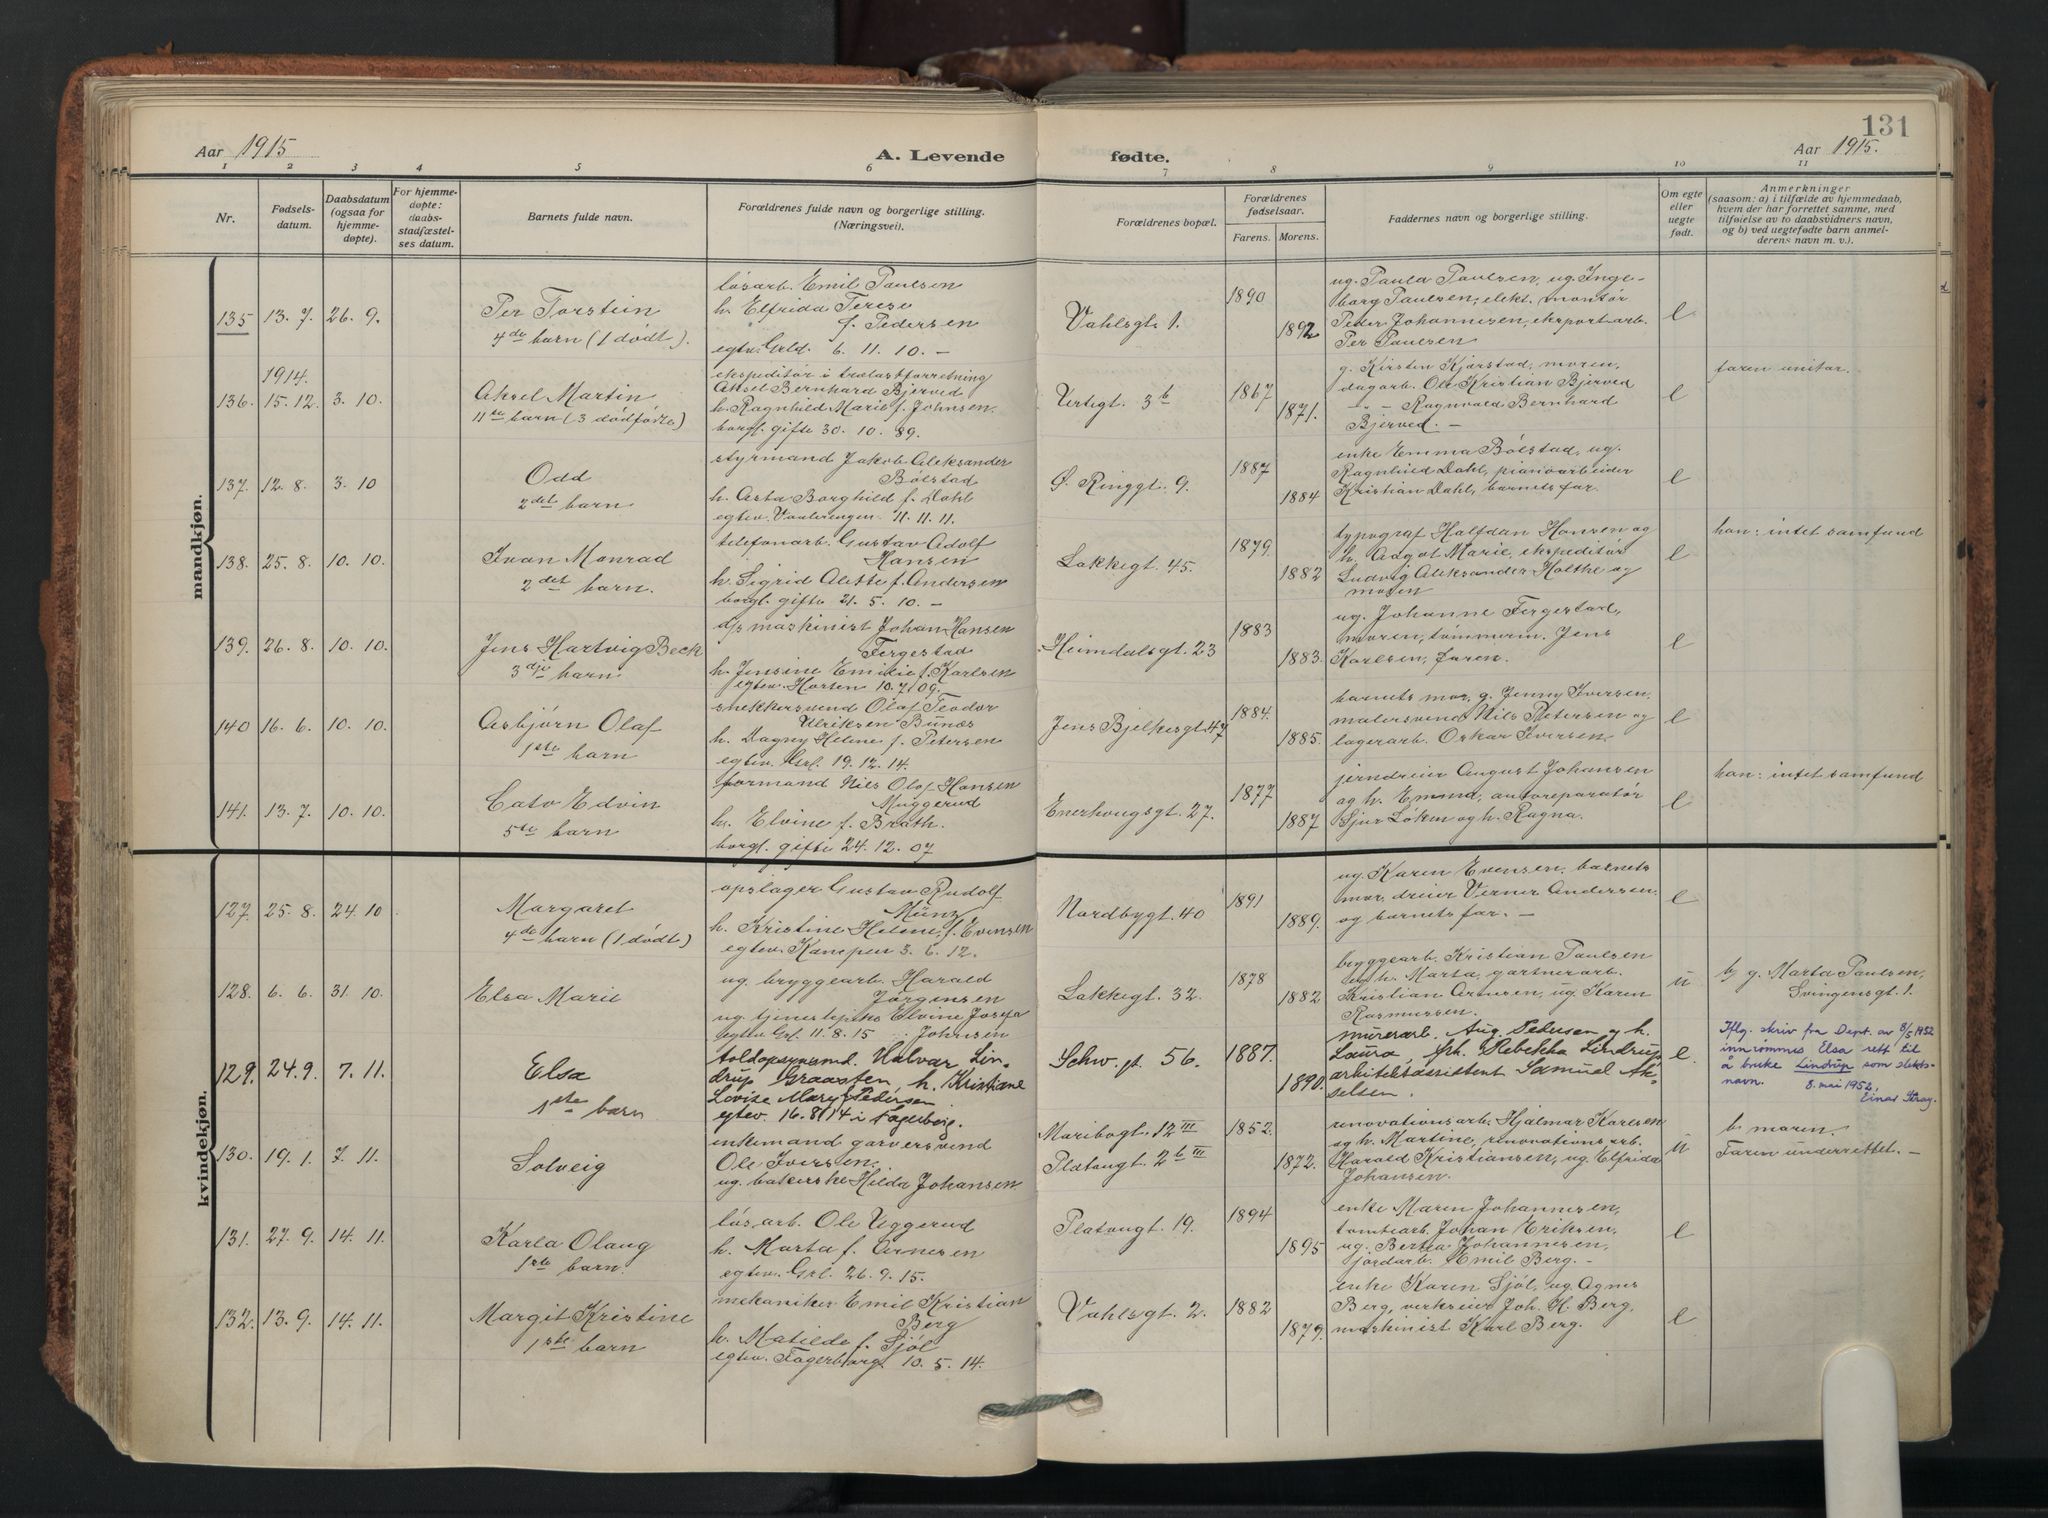 131
Aar 1915
A. Levende fødte.
Aar 1915.
1 2 3 4 5 6 7 8 9 10 11
Nr.
Fødsels-
datum.
Daabsdatum
(ogsaa for
hjemme-
døpte).
For hjemme-
døpte:
daabs-
stadfæstel-
ses datum.
Barnets fulde navn.
Forældrenes fulde navn og borgerlige stilling.
(Næringsvei).
Forældrenes bopæl.
Forældrenes
fødselsaar.
Farens. Morens.
Faddernes navn og borgerlige stilling.
Om egte
eller
uegte
født.
Anmerkninger
(saasom: a) i tilfælde av hjemmedaab,
hvem der har forrettet samme, med
tilføielse av to daabsvidners navn,
og b) ved uegtefødte barn anmel-
derens navn m. v.).
mandkjøn.
135 13. 7. 26. 9.
Per Torstein
4de barn (1 dødt).
løsarb. Emil Paulsen
h. Elfrida Terese
f. Pedersen
egtev. Grld. 6. 11. 10. –
Vahlsgt. 1.
1890
1892
ug. Paula Paulsen, ug. Inge-
borg Paulsen, elekt. montør
Peder Johannesen, eksportarb.
Per Paulsen
e
1914.
136. 15. 12. 3. 10.
Aksel Martin
11te barn (3 dødfødte)
ekspeditør i trælastforretning
Aksel Bernhard Bjerved
h. Ragnhild Marie f. Johnsen.
borgl. gifte 30. 10. 89.
Urtegt. 3b
1867
1871.
g. Kirsten Kjørstad, moren,
dagarb. Ole Kristian Bjerved
– „ – Ragnvald Bernhard
Bjerved. –
e
faren unitar.
137. 12. 8. 3. 10
Odd
2det barn
styrmand Jakob Aleksander
Bølstad
h. Asta Borghild f. Dahl
egtev. Vaalerengen 11. 11. 11.
Ø. Ringgt. 9.
1887
1884
enke Emma Bølstad, ug.
Ragnhild Dahl, pianoarbeider
Kristian Dahl, barnets far.
e
138. 25. 8. 10. 10.
Ivan Monrad
2det barn.
telefonarb. Gustav Adolf
Hansen
h. Sigrid Aleste f. Andersen
borgl. gifte 21. 5. 10. –
Lakkegt. 45.
1879.
1882
typograf Halfdan Hansen og
h. Aagot Marie, ekspeditør
Ludvig Aleksander Holthe og
moren
e
han: intet samfund
139. 26. 8. 10. 10.
Jens Hartvig Beck
3dje barn.
d/s maskinist Johan Hansen
Fergestad
h. Jensine Emilie f. Karlsen
egtev. Horten 10. 7. 09.
Heimdalsgt. 23
1883
1883.
ug. Johanne Fergestad,
moren, tømmerm. Jens
Karlsen, faren.
e
140 16. 6. 10. 10.
Asbjørn Olaf
1ste barn
snekkersvend Olaf Teodor
Ulriksen Bunæs
h. Dagny Helene f. Petersen
egtev. Grl. 19. 12. 14.
Jens Bjelkesgt. 47
1884.
1885.
barnets mor, g. Jenny Iversen,
malersvend Nils Petersen og
lagerarb. Oskar Iversen.
e
141. 13. 7. 10. 10.
Cato Edvin
5te barn
formand Nils Olaf Hansen
Muggerud
h. Elvine f. Bråth.
borgl. gifte 24. 12. 07
Enerhougsgt. 27.
1877
1887
jerndreier August Johansen
og h. Emma, autoreparatør
Sjur Løken og h. Ragna.
e
han: intet samfund
kvindekjøn.
127. 25. 8. 24. 10
Margaret
4de barn (1 dødt)
opslager Gustav Rudolf
Münz
h. Kristine Helene, f. Evensen
egtev. Kampen 3. 6. 12.
Nordbygt. 40
1891
1889.
ug. Karen Evensen, barnets
mor, dreier Verner Andersen
og barnets far. –
e
128. 6. 6. 31. 10.
Elsa Marie
ug. bryggearb. Harald
Jørgensen
ug. tjenestepike Elvine Josefa
egtev. Grl. 11. 8. 15 Johnsen
Lakkegt. 32.
1878
1882
bryggearb. Kristian Paulsen
og h. Marta, gartnerarb.
Kristian Arnesen, ug. Karen
Rasmussen.
u
b/ g. Marta Paulsen,
Svingensgt. 1.
129. 24. 9. 7. 11.
Elsa
1ste barn
toldopsynsmd. Halvar Lin-
drup Graasten, h. Kristiane
Lovise Mary Pedersen
egtev. 16. 8. 14 i Fagerborg.
Schw. gt. 56.
1887.
1890.
murerarb. Aug. Pedersen og h.
Laura, frk. Rebekka Lindrup
arkitektassistent Samuel Ak-
selsen.
e.
Iflg. skriv fra Dept. av 8/5 1952
innrømmes Elsa rett til
å bruke Lindrup som slekts-
navn. 8. mai 1952,
Einar Strøg.
130. 19. 1. 7. 11.
Solveig
enkemand garversvend
Ole Iversen
ug. bakerske Hilda Johansen
Maribogt. 12 III
Platougt. 2b III
1852.
1872.
renovationsarb. Hjalmar Karlsen
og h. Martine, renovationsarb.
Harald Kristiansen, ug. Elfrida
Johansen.
u
b. moren.
Faren underrettet. –
131. 27. 9. 14. 11.
Karla Olaug
1ste barn.
løsarb. Ole Uggerud
h. Marta f. Arnesen
egtev. Grl. 26. 9. 15.
Platougt. 19.
1894
1895
enke Maren Johannesen,
tomtearb. Johan Eriksen,
ug. Bertea Johannesen,
jordarb. Emil Berg. –
e
132. 13. 9. 14. 11.
Margit Kristine
1ste barn
mekaniker Emil Kristian
Berg
h. Matilde f. Sjøl
egtev. Fagerborg. 10. 5. 14.
Vahlsgt. 2.
1882
1879.
enke Karen Sjøl, ug. Agnes
Berg, verkseier Joh. H. Berg,
maskinist Karl Berg.
e